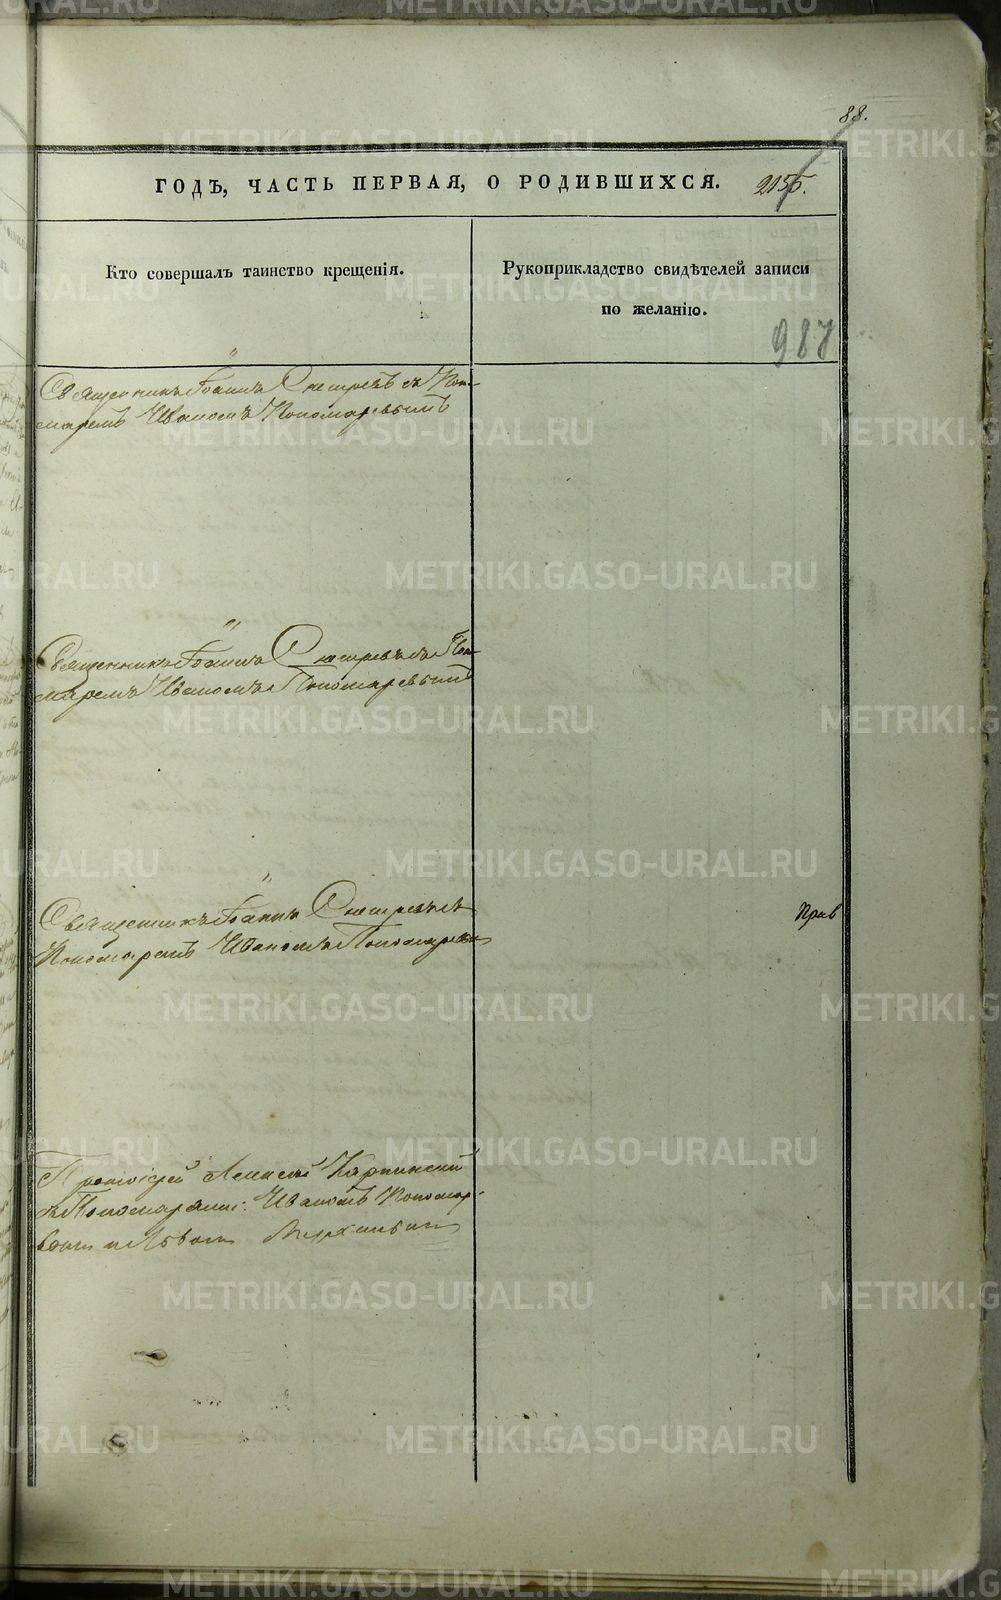 88.
ГОДЪ, ЧАСТЬ ПЕРВАЯ, О РОДИВШИХСЯ. 2155.
Кто совершалъ таинство крещенія.
Рукоприкладство свидѣтелей записи
по желанію.
987
Священникъ Іоаннъ съ Поно-
маремъ Иваномъ Пономаревымъ
Священникъ Іоаннъ съ Поно-
маремъ Иваномъ Пономаревымъ
Священникъ Іоаннъ съ
Пономаремъ Иваномъ Пономаревы
Протоіерей Алексѣй Карпинскій
съ Пономарями: Иваномъ Пономар-
вымъ и Львомъ
METRIKI.GASO-URAL.RU